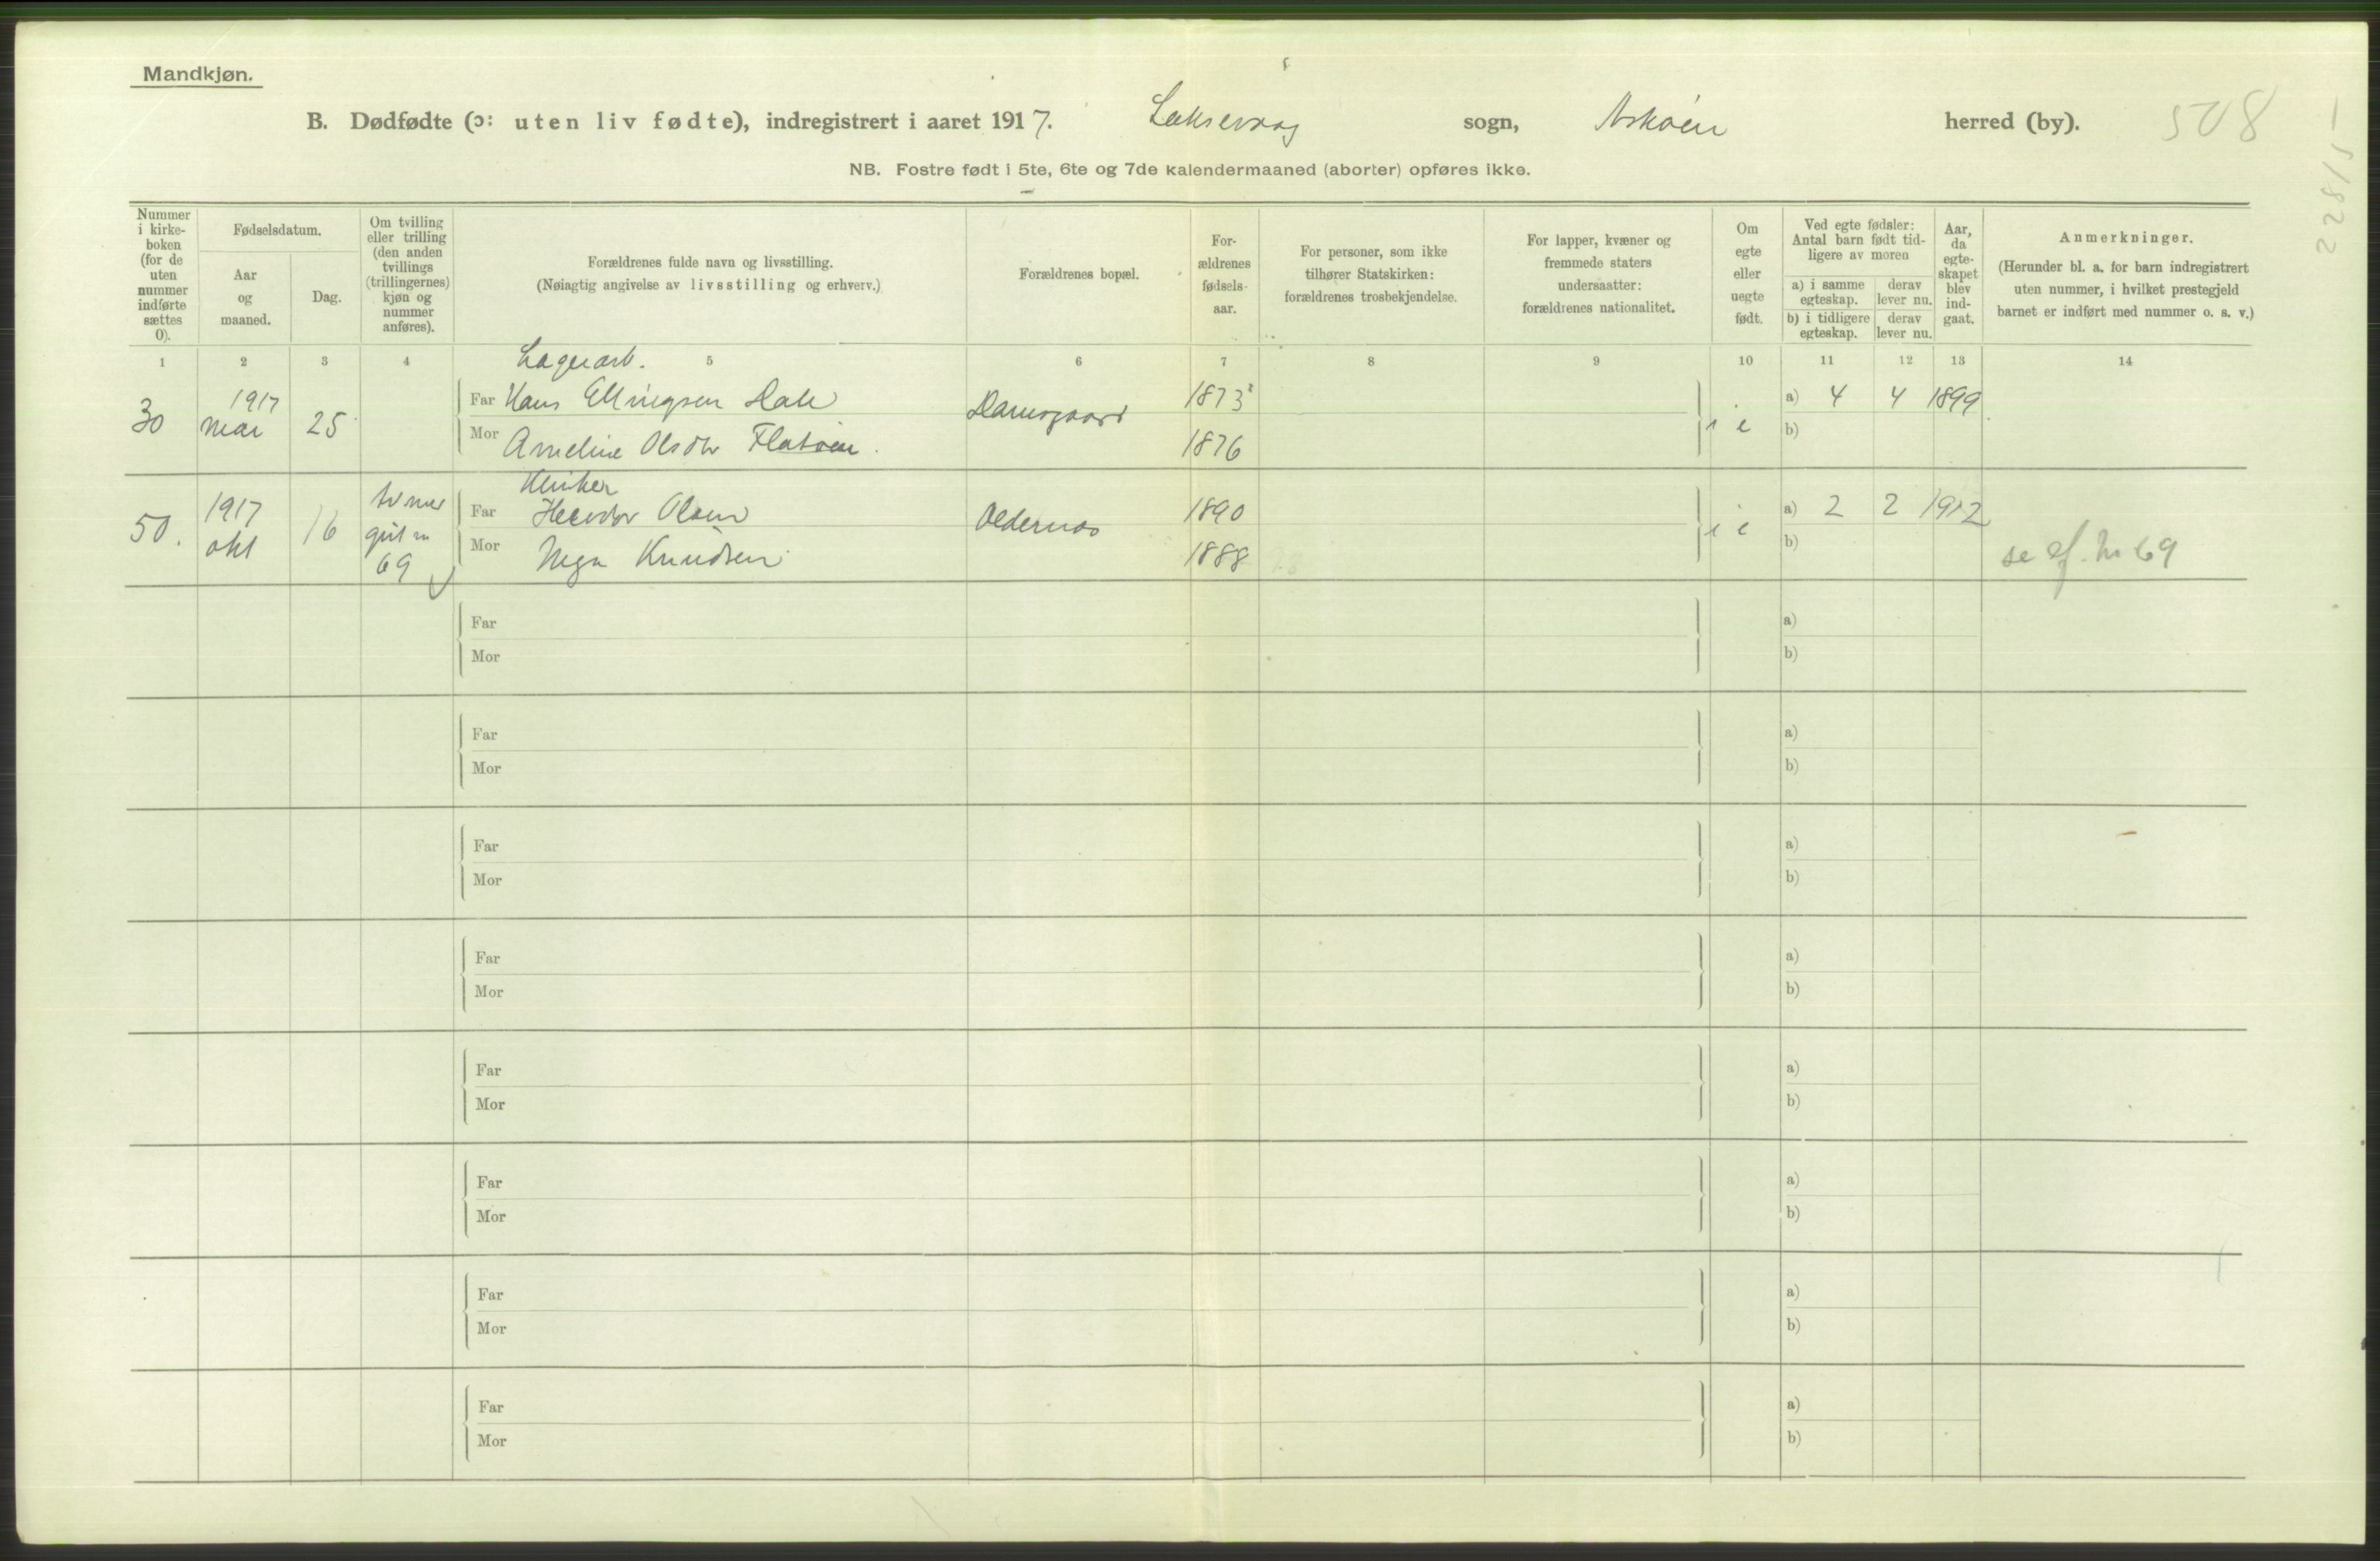 Mandkjøn.
B. Dødfødte (ɔ: uten liv fødte), indregistrert i aaret 1917. Laksevaag sogn, Askøen herred (by). 508
NB. Fostre født i 5te, 6te og 7de kalendermaaned (aborter) opføres ikke.
22815
Nummer i kirke-
boken
(for de
uten
nummer
indførte
sættes
0).
Fødselsdatum.
Aar
og
maaned.
Dag.
Om tvilling
eller trilling
(den anden
tvillings
(trillingernes)
kjøn og
nummer
anføres).
Forældrenes fulde navn og livsstilling.
(Nøiagtig angivelse av livsstilling og erhverv.)
Forældrenes bopæl.
For-
ældrenes
fødsels-
aar.
For personer, som ikke
tilhører Statskirken:
forældrenes trosbekjendelse.
For lapper, kvæner og
fremmede staters
undersaatter:
forældrenes nationalitet.
Om
egte
eller
uegte
født.
Ved egte fødsler:
Antal barn født tid-
ligere av moren
a) i samme
egteskap.
derav
lever nu.
b) i tidligere
egteskap.
derav
lever nu.
Aar,
da
egte-
skapet
blev
ind-
gaat.
Anmerkninger.
(Herunder bl. a. for barn indregistrert
uten nummer, i hvilket prestegjeld
barnet er indført med nummer o. s. v.)
1 2 3 4 5 6 7 8 9 10 11 12 13 14
Lagerarb.
30 1917 mai 25 Far Hans Ellingsen Dale Damsgaard 1873 i e a) 4 4 1899
Mor Ameline Olsdtr Flatøen. 1876 b)
Klinker
50. 1917 okt 16 Far Olsen Oldernes 1890 i e a) 2 2 1912
69 Mor Inga Knudsen 1888 b) se nr 69
Far a)
Mor b)
Far a)
Mor b)
Far a)
Mor b)
Far a)
Mor b)
Far a)
Mor b)
Far a)
Mor b)
Far a)
Mor b)
Far a)
Mor b)